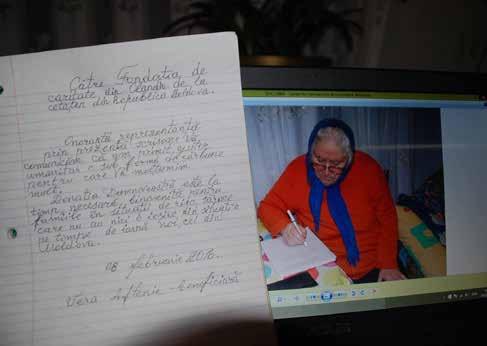 Către Fondația de
caritate din Olanda de la
cetățeni din Republica Moldova.
Onorată reprezentanță
prin prezenta scrisoare Vă
comunicăm că am primit ajutor
umanitar sub formă de cărbune
pentru care Vă mulțumim
mult.
Donația Dumneavoastră este la
timp, necesară, binevenită pentru
familiile în situații de risc,
care nu au nici o ieșire din situație
pe timp de iarnă noi, cei din
Moldova.
08 februarie 2016.
Vera Aftenie - beneficiară